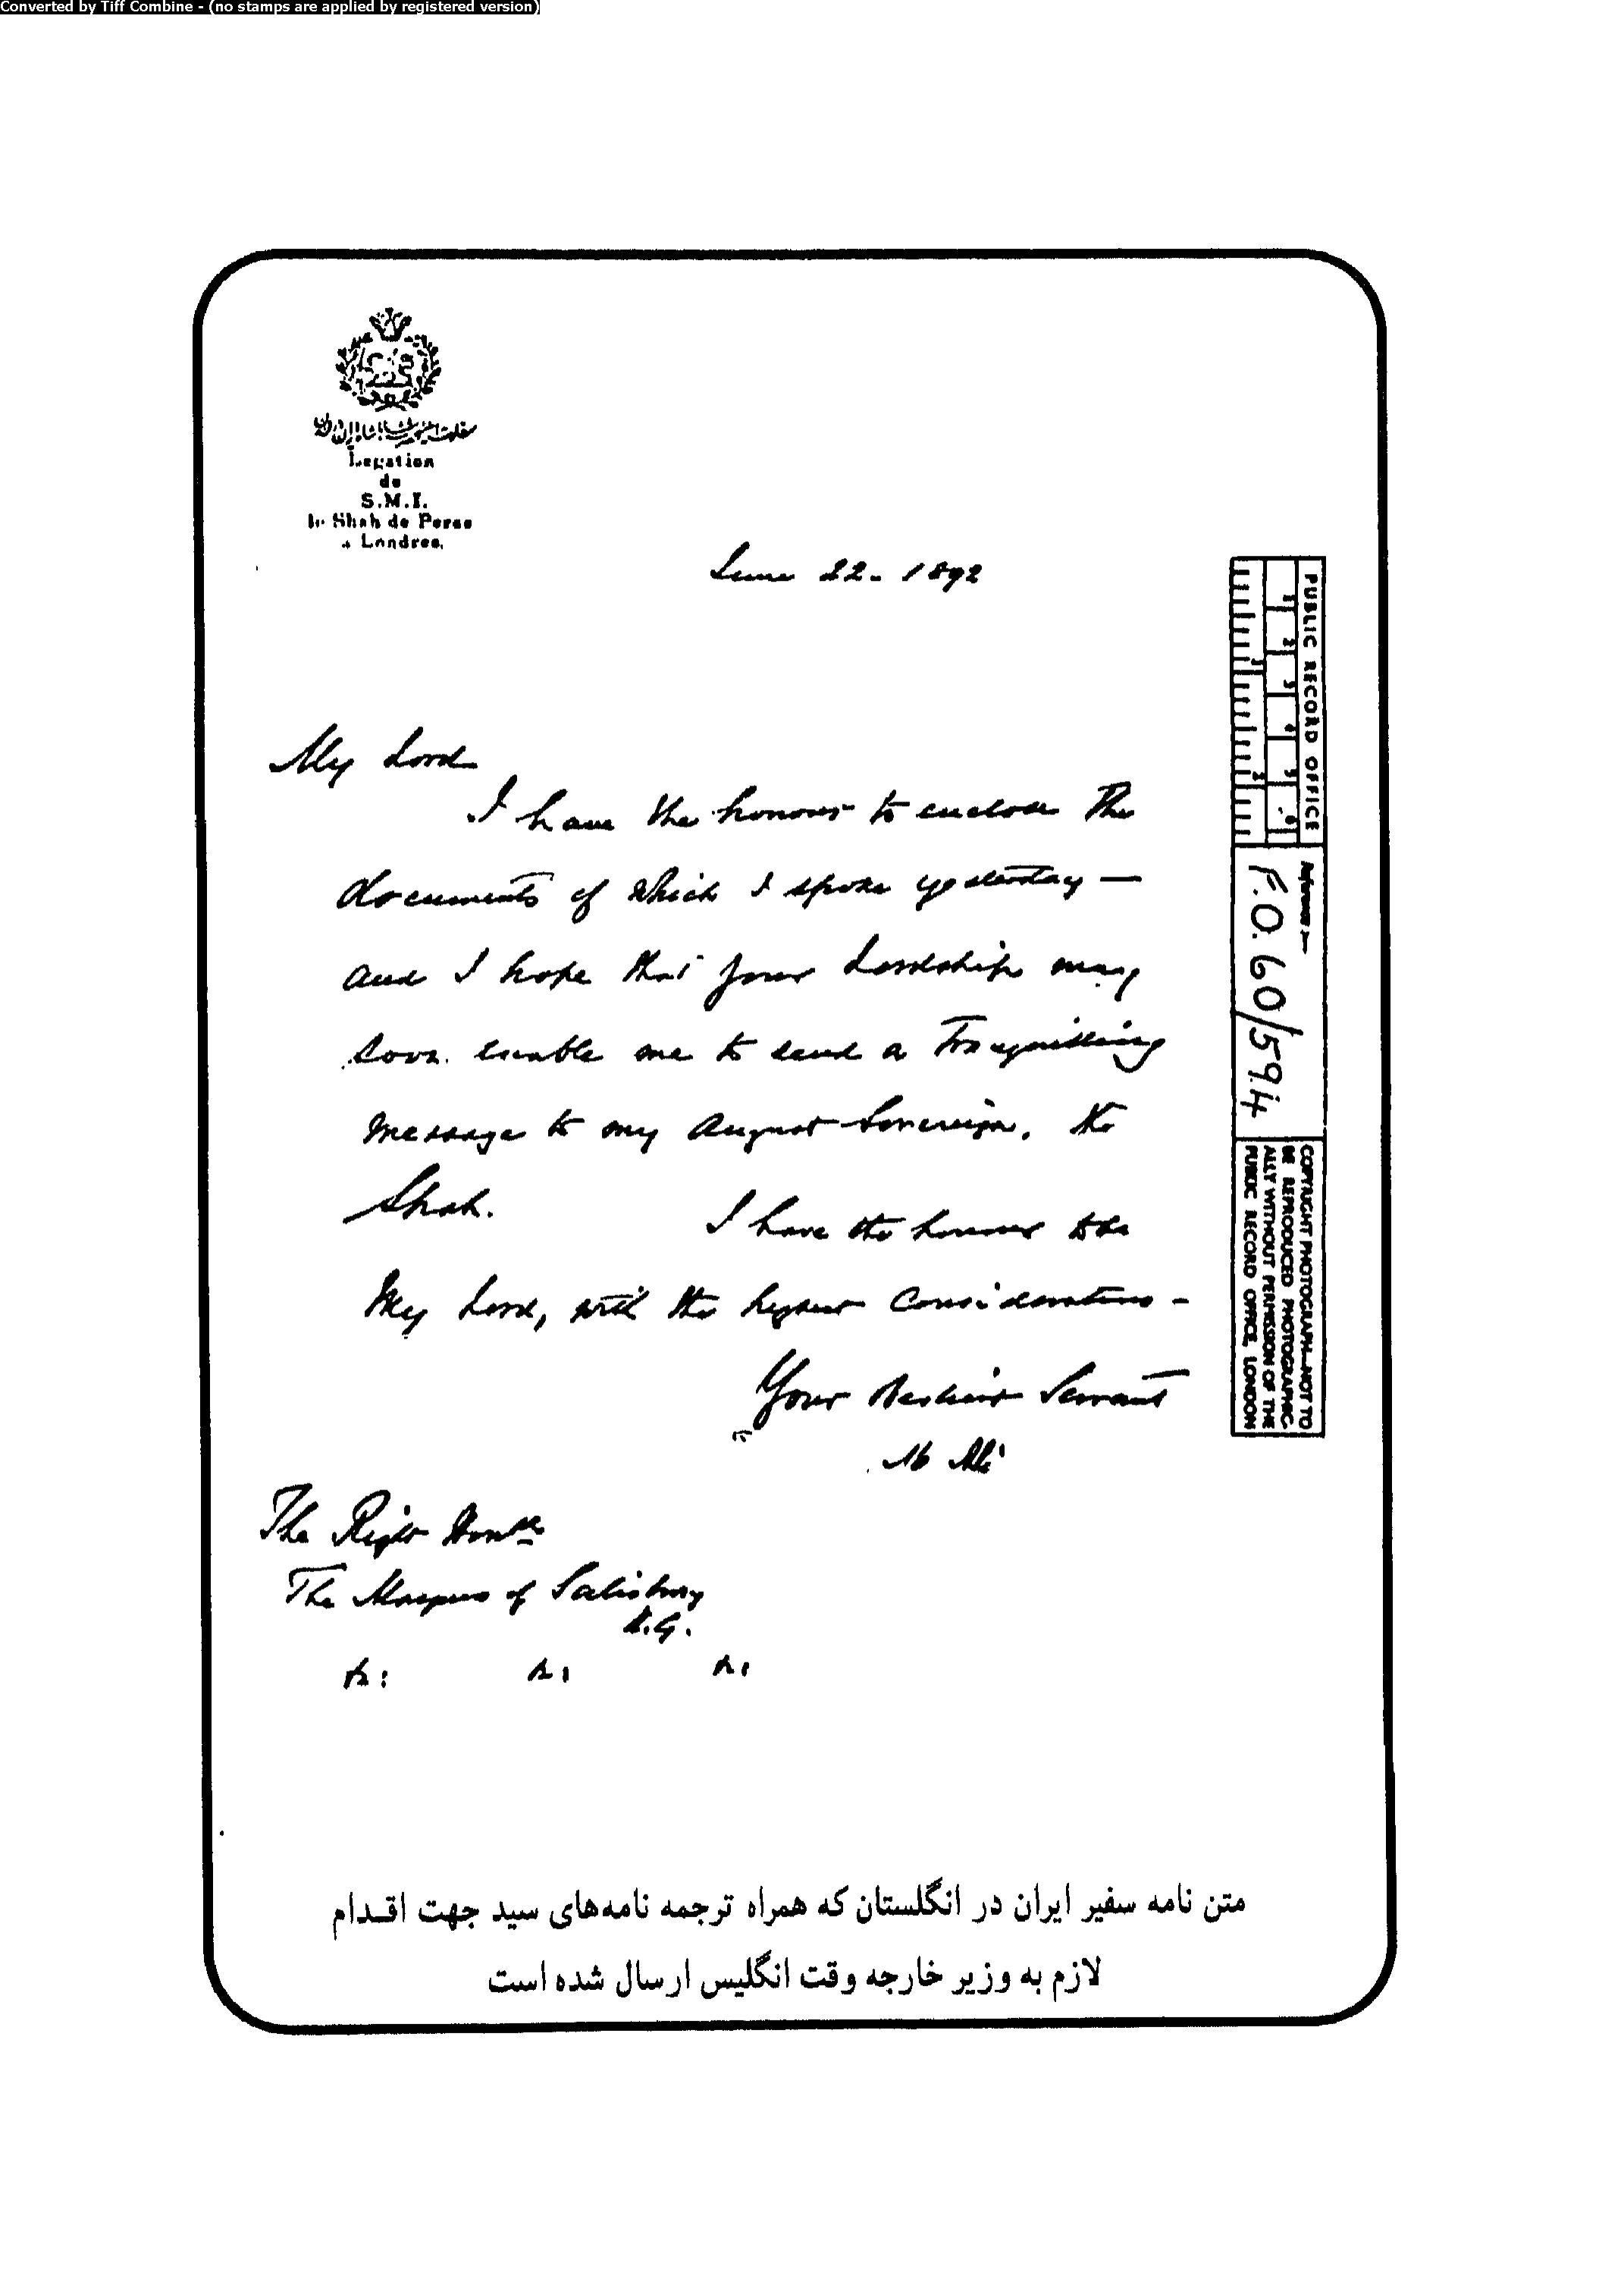 Converted by Tiff Combine - (no stamps are applied by registered version)
Legation
de
S.M.I.
le Shah de Perse
à Londres.
June 22 - 1892
My Lord
I have the honour to enclose the
documents of which I spoke yesterday —
and I hope that your Lordship may
soon enable me to send a Tranquilling
message to my August Sovereign, the
Shah.
I have the honour to be
My Lord, with the highest Consideration -
Your obedient Servant
The Right Honble
The Marquis of Salisbury
K.G.
PUBLIC RECORD OFFICE
1 2 3 4 5 6
1 2
Reference :-
F.O. 60/594
COPYRIGHT PHOTOGRAPH—NOT TO
BE REPRODUCED PHOTOGRAPHIC-
ALLY WITHOUT PERMISSION OF THE
PUBLIC RECORD OFFICE, LONDON
متن نامه سفیر ایران در انگلستان که همراه ترجمه نامه‌های سید جهت اقـدام
لازم به وزیر خارجه وقت انگلیس ارسال شده است